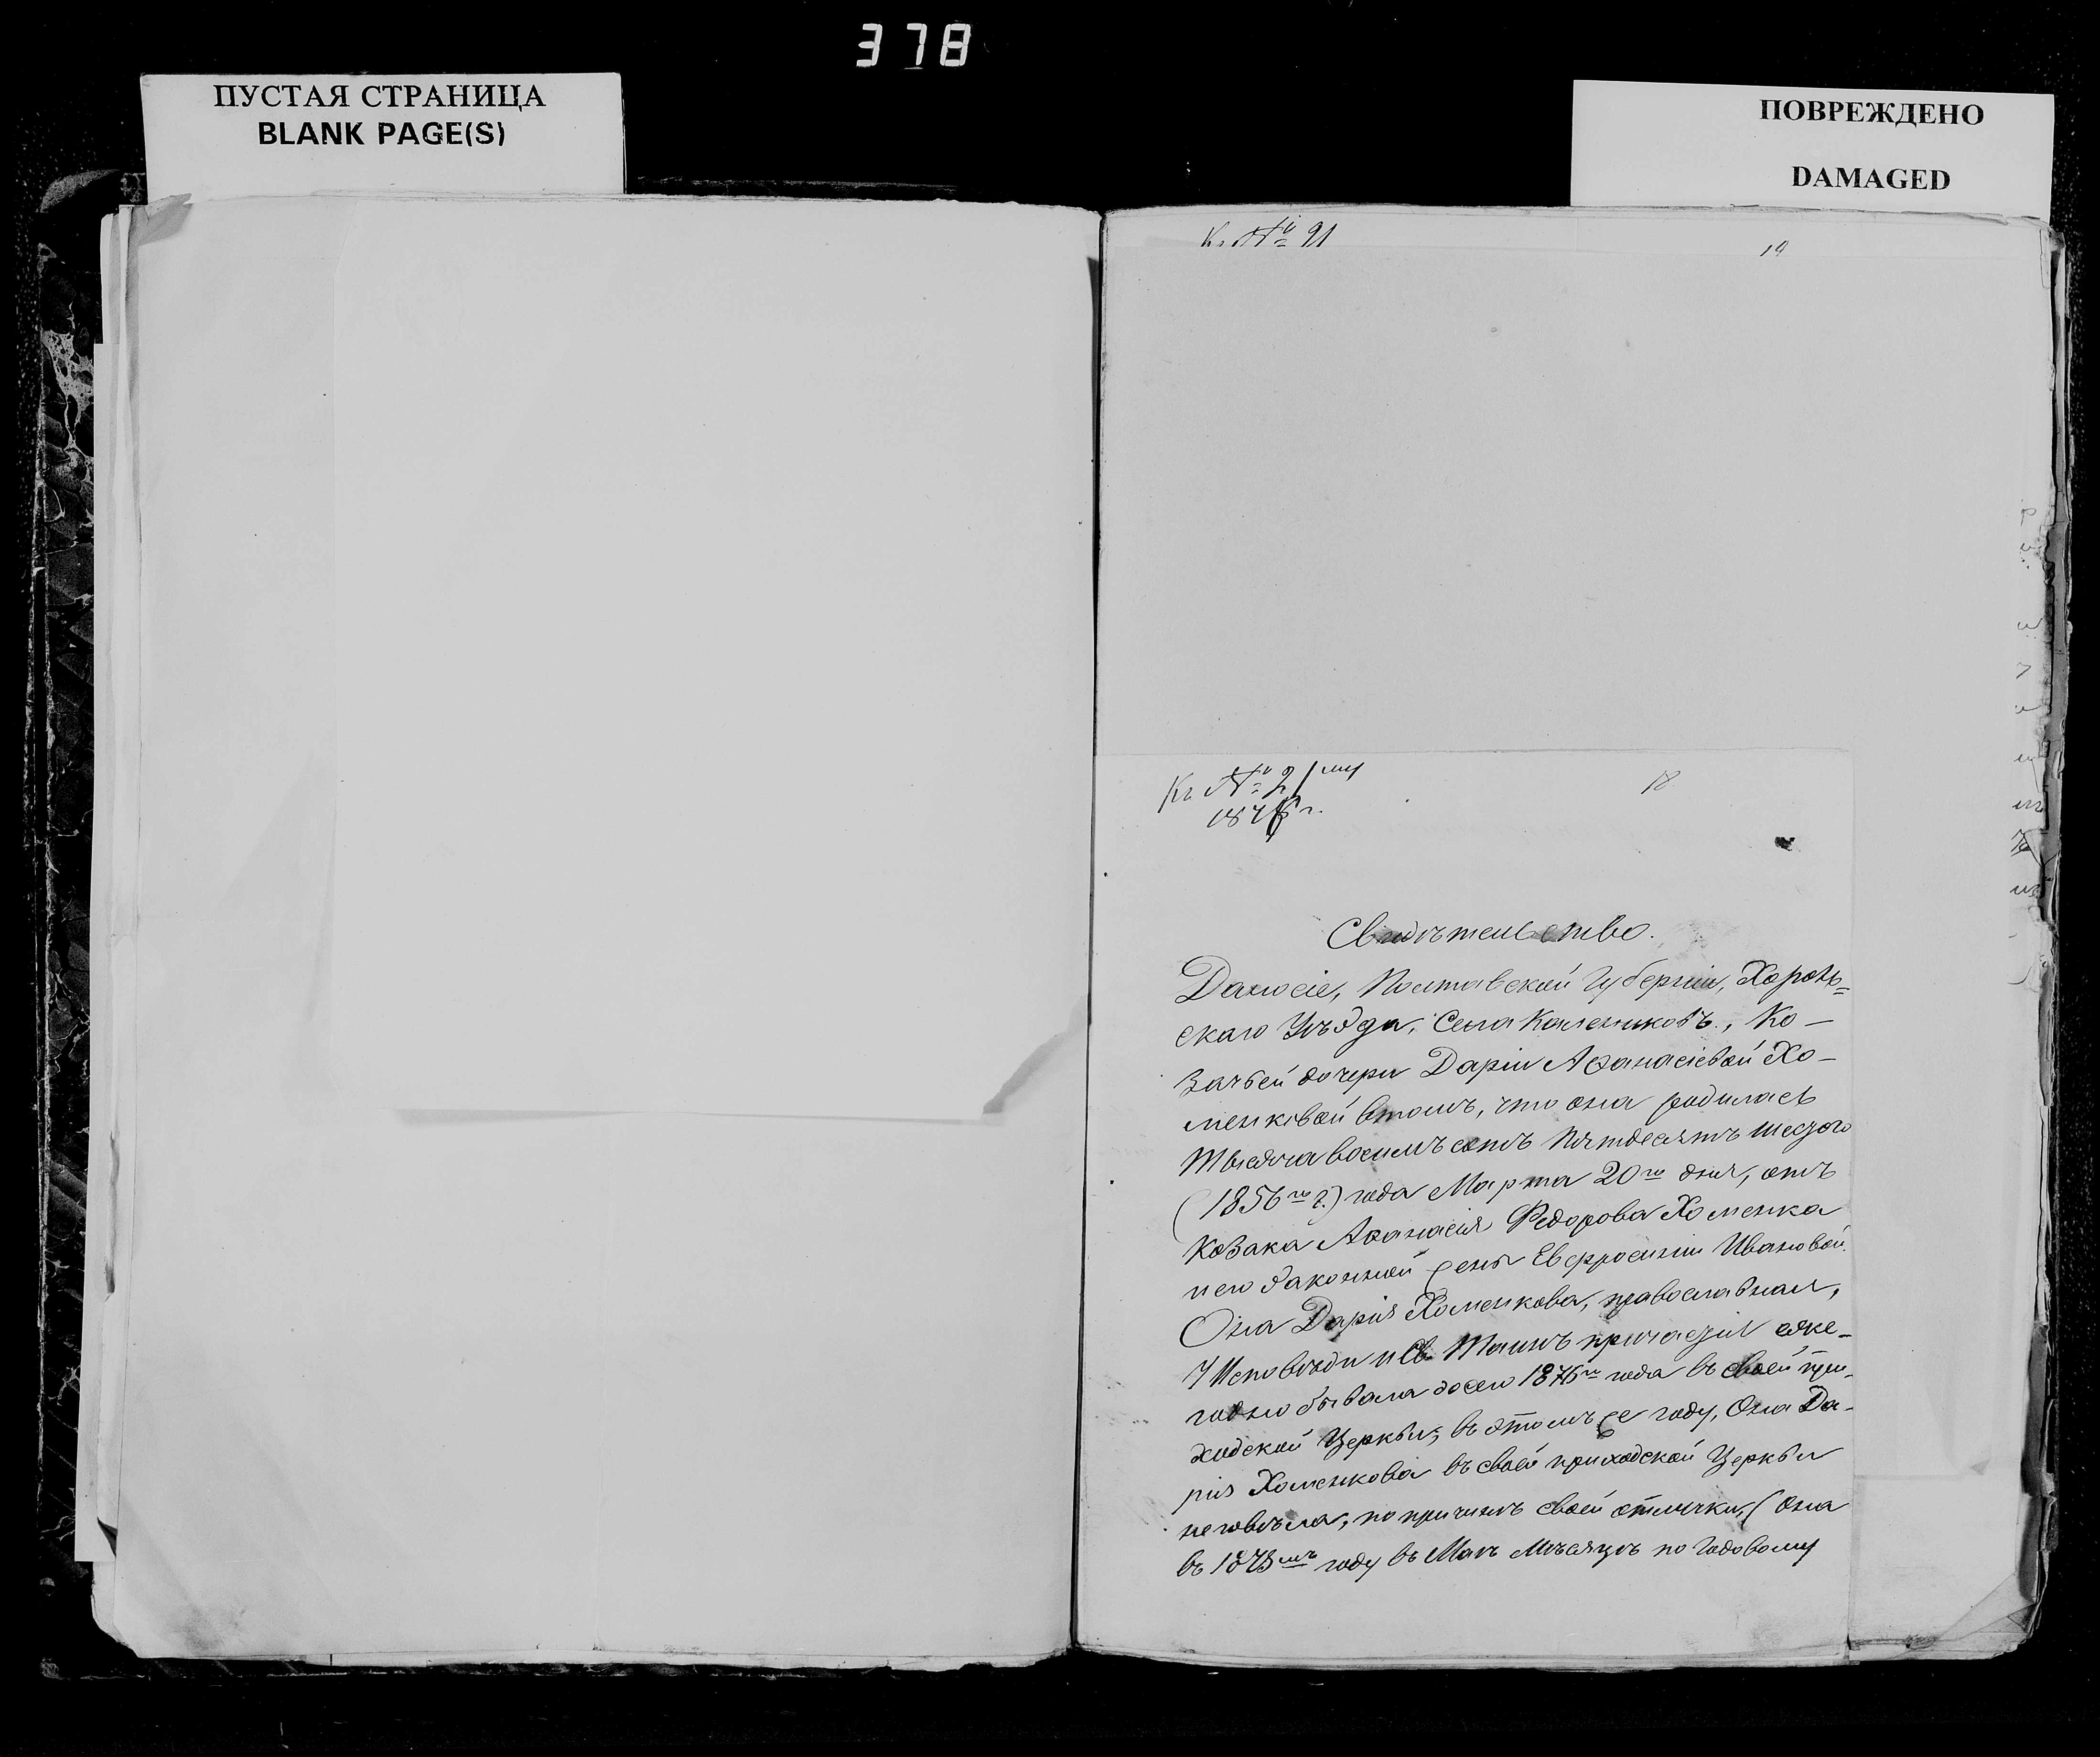 378
ПУСТАЯ СТРАНИЦА
BLANK PAGE(S)
ПОВРЕЖДЕНО
DAMAGED
Къ № 21
19
Къ № 21му
1876 г.
18
Свидѣтельство.
Дано сіе, Полтавской Губерніи, Хороль=
скаго Уѣзда, Села Калениковъ, Ко-
зачьей дочери Даріи Афанасіевой Хо-
менковой втомъ, что она родилась
Тысяча восемьсотъ пятдесятъ шестого
(1856го г.) года Марта 20го дня, отъ
Козака Афанасія Федорова Хоменка
и его законной жены Евфросиніи Ивановой.
Она Дарія Хоменкова, православная,
У Исповѣди и Св. Таинъ причастія еже-
годно бывала досего 1876го года въ своей при-
ходской Церкви; въ этомъ же году, Она Да-
рія Хоменкова въ своей приходской Церкви
неговѣла, по причинѣ своей отлучки, (Она
въ 1875мъ году въ Маѣ Мѣсяцѣ по Годовому